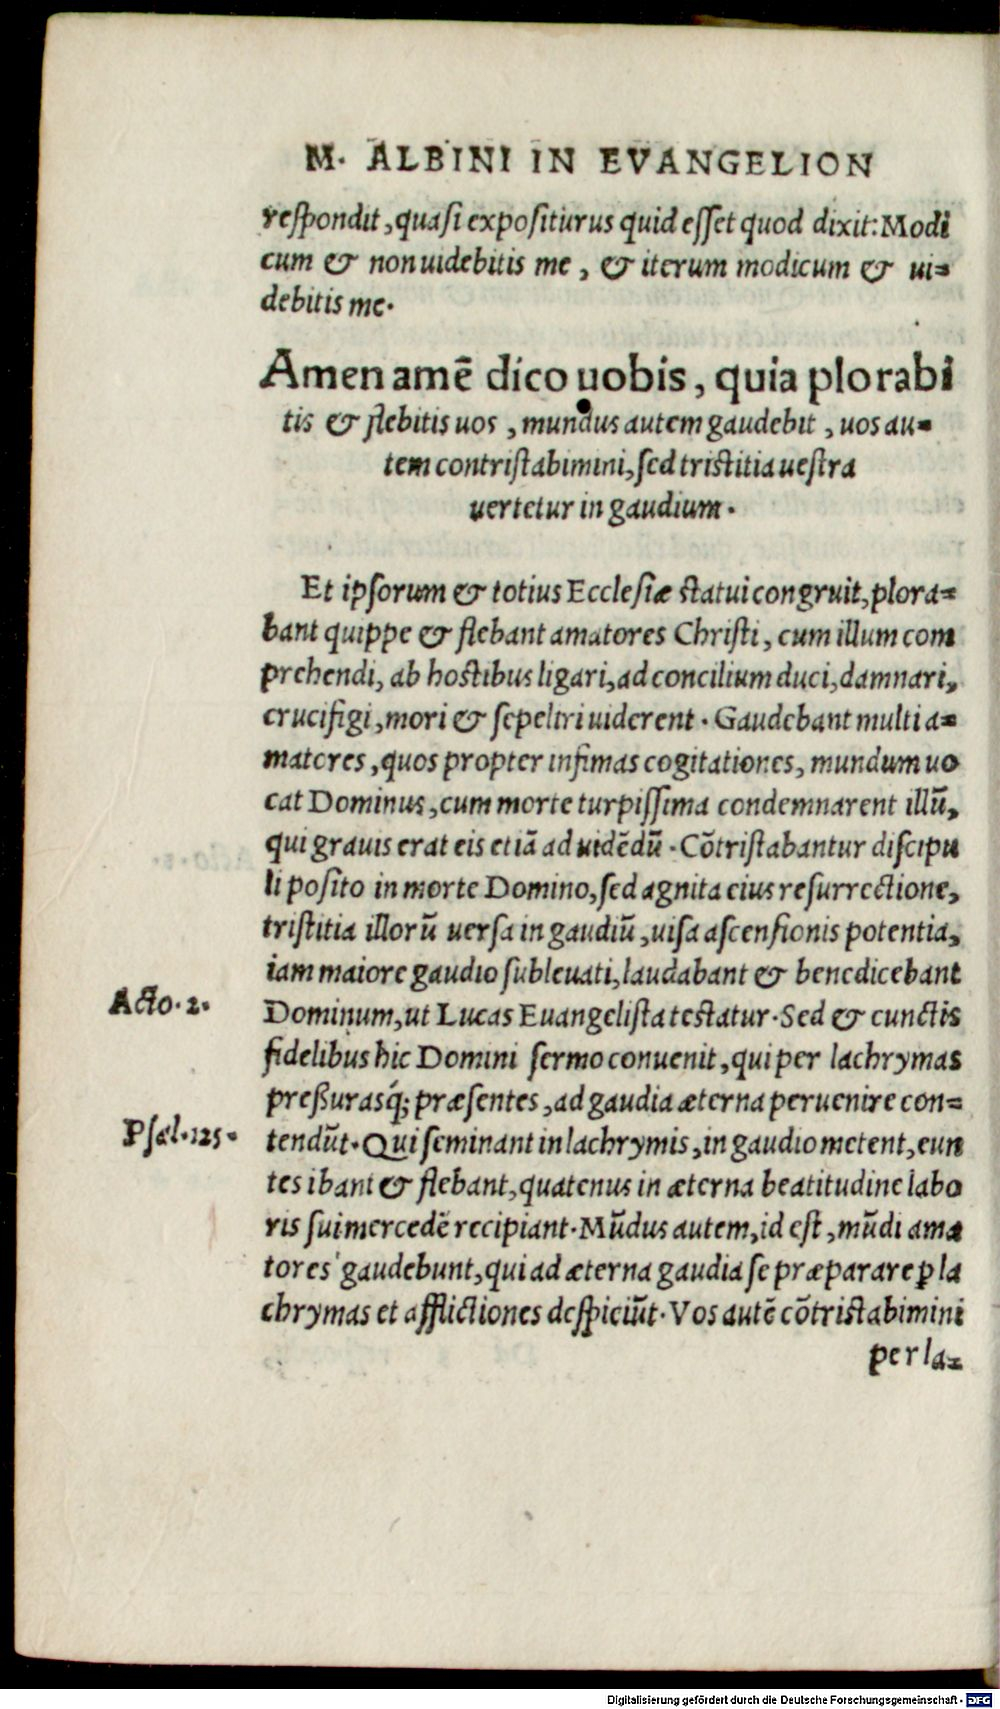 M. ALBINI IN EVANGELION
respondit, quasi expositurus quid esset quod dixit: Modi
cum & non uidebitis me, & iterum modicum & ui=
debitis me.
Amen amē dico uobis, quia plorabi
tis & flebitis uos, mundus autem gaudebit, uos au=
tem contristabimini, sed tristitia uestra
uertetur in gaudium.
Et ipsorum & totius Ecclesiæ statui congruit, plora=
bant quippe & flebant amatores Christi, cum illum com
prehendi, ab hostibus ligari, ad concilium duci, damnari,
crucifigi, mori & sepeliri uiderent. Gaudebant multi a=
matores, quos propter infimas cogitationes, mundum uo
cat Dominus, cum morte turpissima condemnarent illū,
qui grauis erat eis etiā ad uidēdū. Cōtristabantur discipu
li posito in morte Domino, sed agnita eius resurrectione,
tristitia illorū uersa in gaudiū, uisa ascensionis potentia,
iam maiore gaudio subleuati, laudabant & benedicebant
Acto. 2.
Dominum, ut Lucas Euangelista testatur. Sed & cunctis
fidelibus hic Domini sermo conuenit, qui per lachrymas
preßurasq́; præsentes, ad gaudia æterna peruenire con=
Psal. 125.
tendūt. Qui seminant in lachrymis, in gaudio metent, eun
tes ibant & flebant, quatenus in æterna beatitudine labo
ris sui mercedē recipiant. Mūdus autem, id est, mūdi ama
tores gaudebunt, qui ad æterna gaudia se præparare ꝑ la
chrymas et afflictiones despiciūt. Vos autē cōtristabimini
per la=
Digitalisierung gefördert durch die Deutsche Forschungsgemeinschaft - DFG